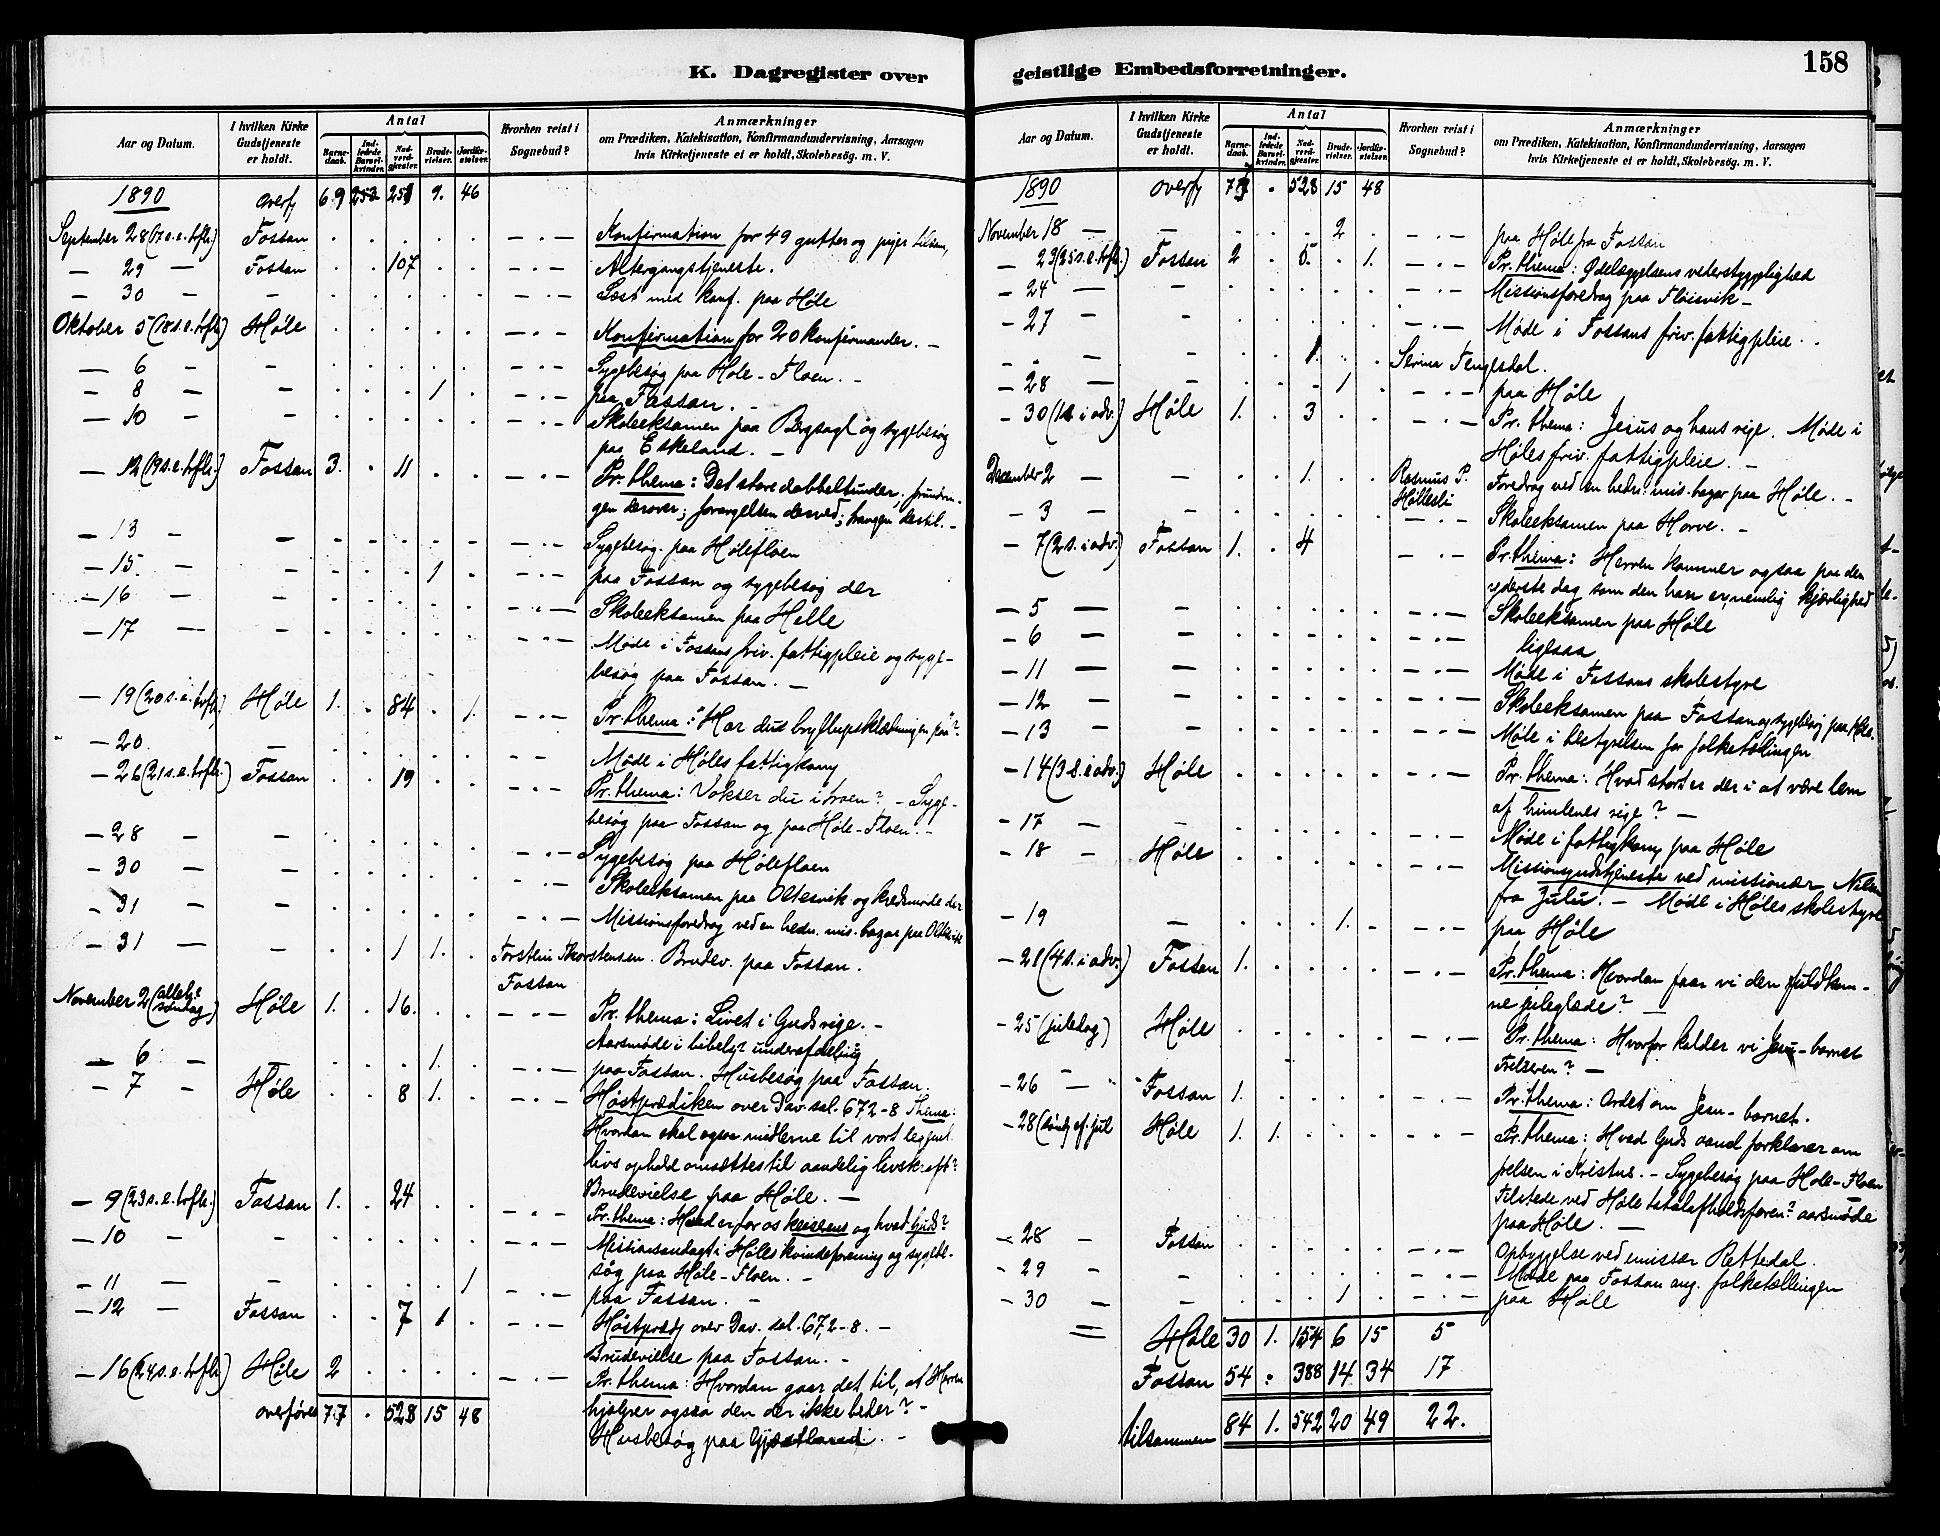 K. Dagregister over
Aar og Datum.
I hvilken Kirke Gudstjeneste er holdt.
Antal
Barne-daab.
Ind-ledede Barsel-kvinder.
Nad-verd-gjester.
Brude-vielser.
Jordfæ-stelser.
Hvorhen reist i Sognebud?
Anmærkninger
om Prædiken, Katekisation, Konfirmandundervisning, Aarsagen
hvis Kirketjeneste ei er holdt, Skolebesög. m. V.
1890 overf 69 251 9. 46
September 28 (17 s. e. trfh.) Fossan . . . . . — . — Konfirmation for 49 gutter og piger
— 29 — Fossan . . 107 . . — . — Altergangstjeneste.
— 30 — — . . . . . — . — Læst med konf. paa Høle
Oktober 5 (18 s. e. trfh.) Høle . . . . . — . — Konfirmation for 20 konfirmander. —
— 6 — — . . . . . — . — Sygebesøg paa Høle-Floen. —
— 8 — — . . . 1 . — . — paa Fossan. —
— 10 — — . . . . . — . — Skoleeksamen paa Bergsagl og sygebesøg
paa Eskeland. —
— 12 (19 s. e. trfh.) Fossan 3. . 11 . . — . — Pr. thema: Det store dobbeltunder; forundrin-
gen derover; forargelsen derved; trangen dertil. —
— 13 — — . . . . . — . — Sygebesøg. paa Hølefloen
— 15. — — . . . 1 . — . — paa Fossan og sygebesøg der
— 16 — — . . . . . — . — Skoleeksamen paa Helle
— 17 — — . . . . . — . — Møde i Fossans friv. fattigpleie og syge-
besøg paa Fossan. —
— 19 (20 s. e. trfh.) Høle 1. . 84 . 1. — . — Pr. thema: "Har du bryllupsklædningen paa"?
— 20. — . . . . . — . — Møde i Høles fattigkom
— 26 (21 s. e. trfh.) Fossan . . 19 . . — . — Pr. thema: Vokser du i troen? — Syge-
besøg paa Fossan og paa Høle-Floen. —
— 28 — — . . . . . — . — Sygebesøg paa Hølefloen
— 30 — — . . . . . — . — Skoleeksamen paa Oltesvik og kredsmøde der
— 31 — — . . . . . — . — Missionsforedrag ved en hedn. mis. bazar paa Oltesvik
— 31 — — . . 1 1. . Torstein Thorstensen. Brudev. paa Fossan.
Fossan
November 2 (allehl. søndag) Høle 1. . 16. . . — . — Pr. thema: Livet i Guds rige. —
Aarsmøde i bibels? underafdeling
— 6 — — . . . 1. . — . — paa Fossan. Husbesøg paa Fossan.
— 7 — Høle . . 8 1. . — . — Høstprædiken over Dav. sal. 67 2-8 Thema:
Hvordan skal ogsaa midlerne til vort legeml.
livs ophold omsættes til aandelig livskraft?
Brudevielse paa Høle. —
— 9 (23 s. e. trfh.) Fossan 1. . 24 . . — . — Pr. thema: Hvad er for os keiserens og hvad Guds?
— 10 — — . . . . . — . — Missionsandagt i Høles kvindeforening og sygebe-
søg paa Høle-Floen. —
— 11 — — . . . . 1 — . — paa Fossan. —
— 12 — Fossan . . 7 1 . Høstpræd over Dav. sal. 67, 2-8. —
Brudevielse paa Fossan. —
— 16 (24 s. e. trfh.) Høle 2 . . . . — . — Pr. thema: Hvordan gaar det til, at Herren
overføres 77 . 528 15 48 hjælper ogsaa den der ikke beder? —
Husbesøg paa Gjestland. —
geistlige Embedsforretninger.
158
Aar og Datum.
I hvilken Kirke Gudstjeneste er holdt.
Antal
Barne-daab.
Ind-ledede Barsel-kvinder.
Nad-verd-gjester.
Brude-vielser.
Jordfæ-stelser.
Hvorhen reist i Sognebud?
Anmærkninger
om Prædiken, Katekisation, Konfirmandundervisning, Aarsagen
hvis Kirketjeneste ei er holdt, Skolebesög. m. V.
1890 overf 77 . 528 15 48
November 18 — — . . . 2 . — . — paa Høle fra Fossan
— 23 (25 s. e. trfh.) Fossan 2 . 5. . 1. — . — Pr. thema: Ødelæggelsens vederstyggelighed
— 24 — — . . . . . — . — Missionsforedrag paa Fløisvik —
— 27 — — . . . . . — . — Møde i Fossans friv. fattigpleie. .
— . — — . . 1. . . Serina Tengesdal.
— 28 — — . . . 1 . — . — paa Høle
— 30 (1 s. i adv.) Høle 1. . 3 . . — . — Pr. thema: Jesus og hans rige. Møde i
Høles friv. fattigpleie. —
December 2 — — . . 1. . . Rasmus P. Foredrag ved en hedn. mis. bazar paa Høle. —
Høllesli
— 3 — — . . . . . — . — Skoleeksamen paa Horve. —
— 7 (2 s. i adv.) Fossan 1. . 4 . . — . — Pr. thema: Herren kommer ogsaa paa den
yderste dag som den han er, nemlig kjærlighed
— 5 — — . . . . . — . — Skoleeksamen paa Høle
— 6 — — . . . . . — . — ligesaa
— 11 — — . . . . . — . — Møde i Fossans skolestyre
— 12 — — . . . . . — . — Skoleeksamen paa Fossan og sygebesøg paa Høle.
— 13 — — . . . . . — . — Møde i bestyrelsen for folketællingen
— 14 (3 s. i adv.) Høle . . . . . — . — Pr. thema: Hvad stort er der i at være lem
af himlenes rige? —
— 17 — — . . . . . — . — Møde i fattigkom paa Høle
— 18 — Høle . . . . . — . — Missionsgudstjeneste ved missionær Nilsen
fra Zulu. — Møde i Høles skolestyre
— 19 — . . . 1. . — . — paa Høle
— 21 (4 s. i adv.) Fossan 1. . . . . — . — Pr. thema: Hvordan faar vi den fuldkom-
ne juleglæde? —
— 25 (juledag) Høle . . . . . — . — Pr. thema: Hvorfor kalder vi Jesu-barnet
Frelseren? —
— 26 — " Fossan 1. . . . . — . — Pr. thema: Ordet om Jesu-barnet.
— 28 (sønd. ef. jul Høle 1. 1. . . . — . — Pr. thema: Hvad Guds aand forklarer om
frelsen i Kristus. — Sygebesøg paa Høle-Floen
Tilstede ved Høle totalafholdsforen? aarsmøde
paa Høle. —
— 28 — Fossan . . . . . — . — Opbyggelse ved emissær Rettedal.
— 29 — — . . . . . — . — Møde paa Fossan ang. folketællingen
— 30 — — . . . 1 . — . — paa Høle
Høle 30 1. 154 6 15 5
Fossan 54 . 388 14 34 17
tilsammen 84 1. 542 20 49 22.